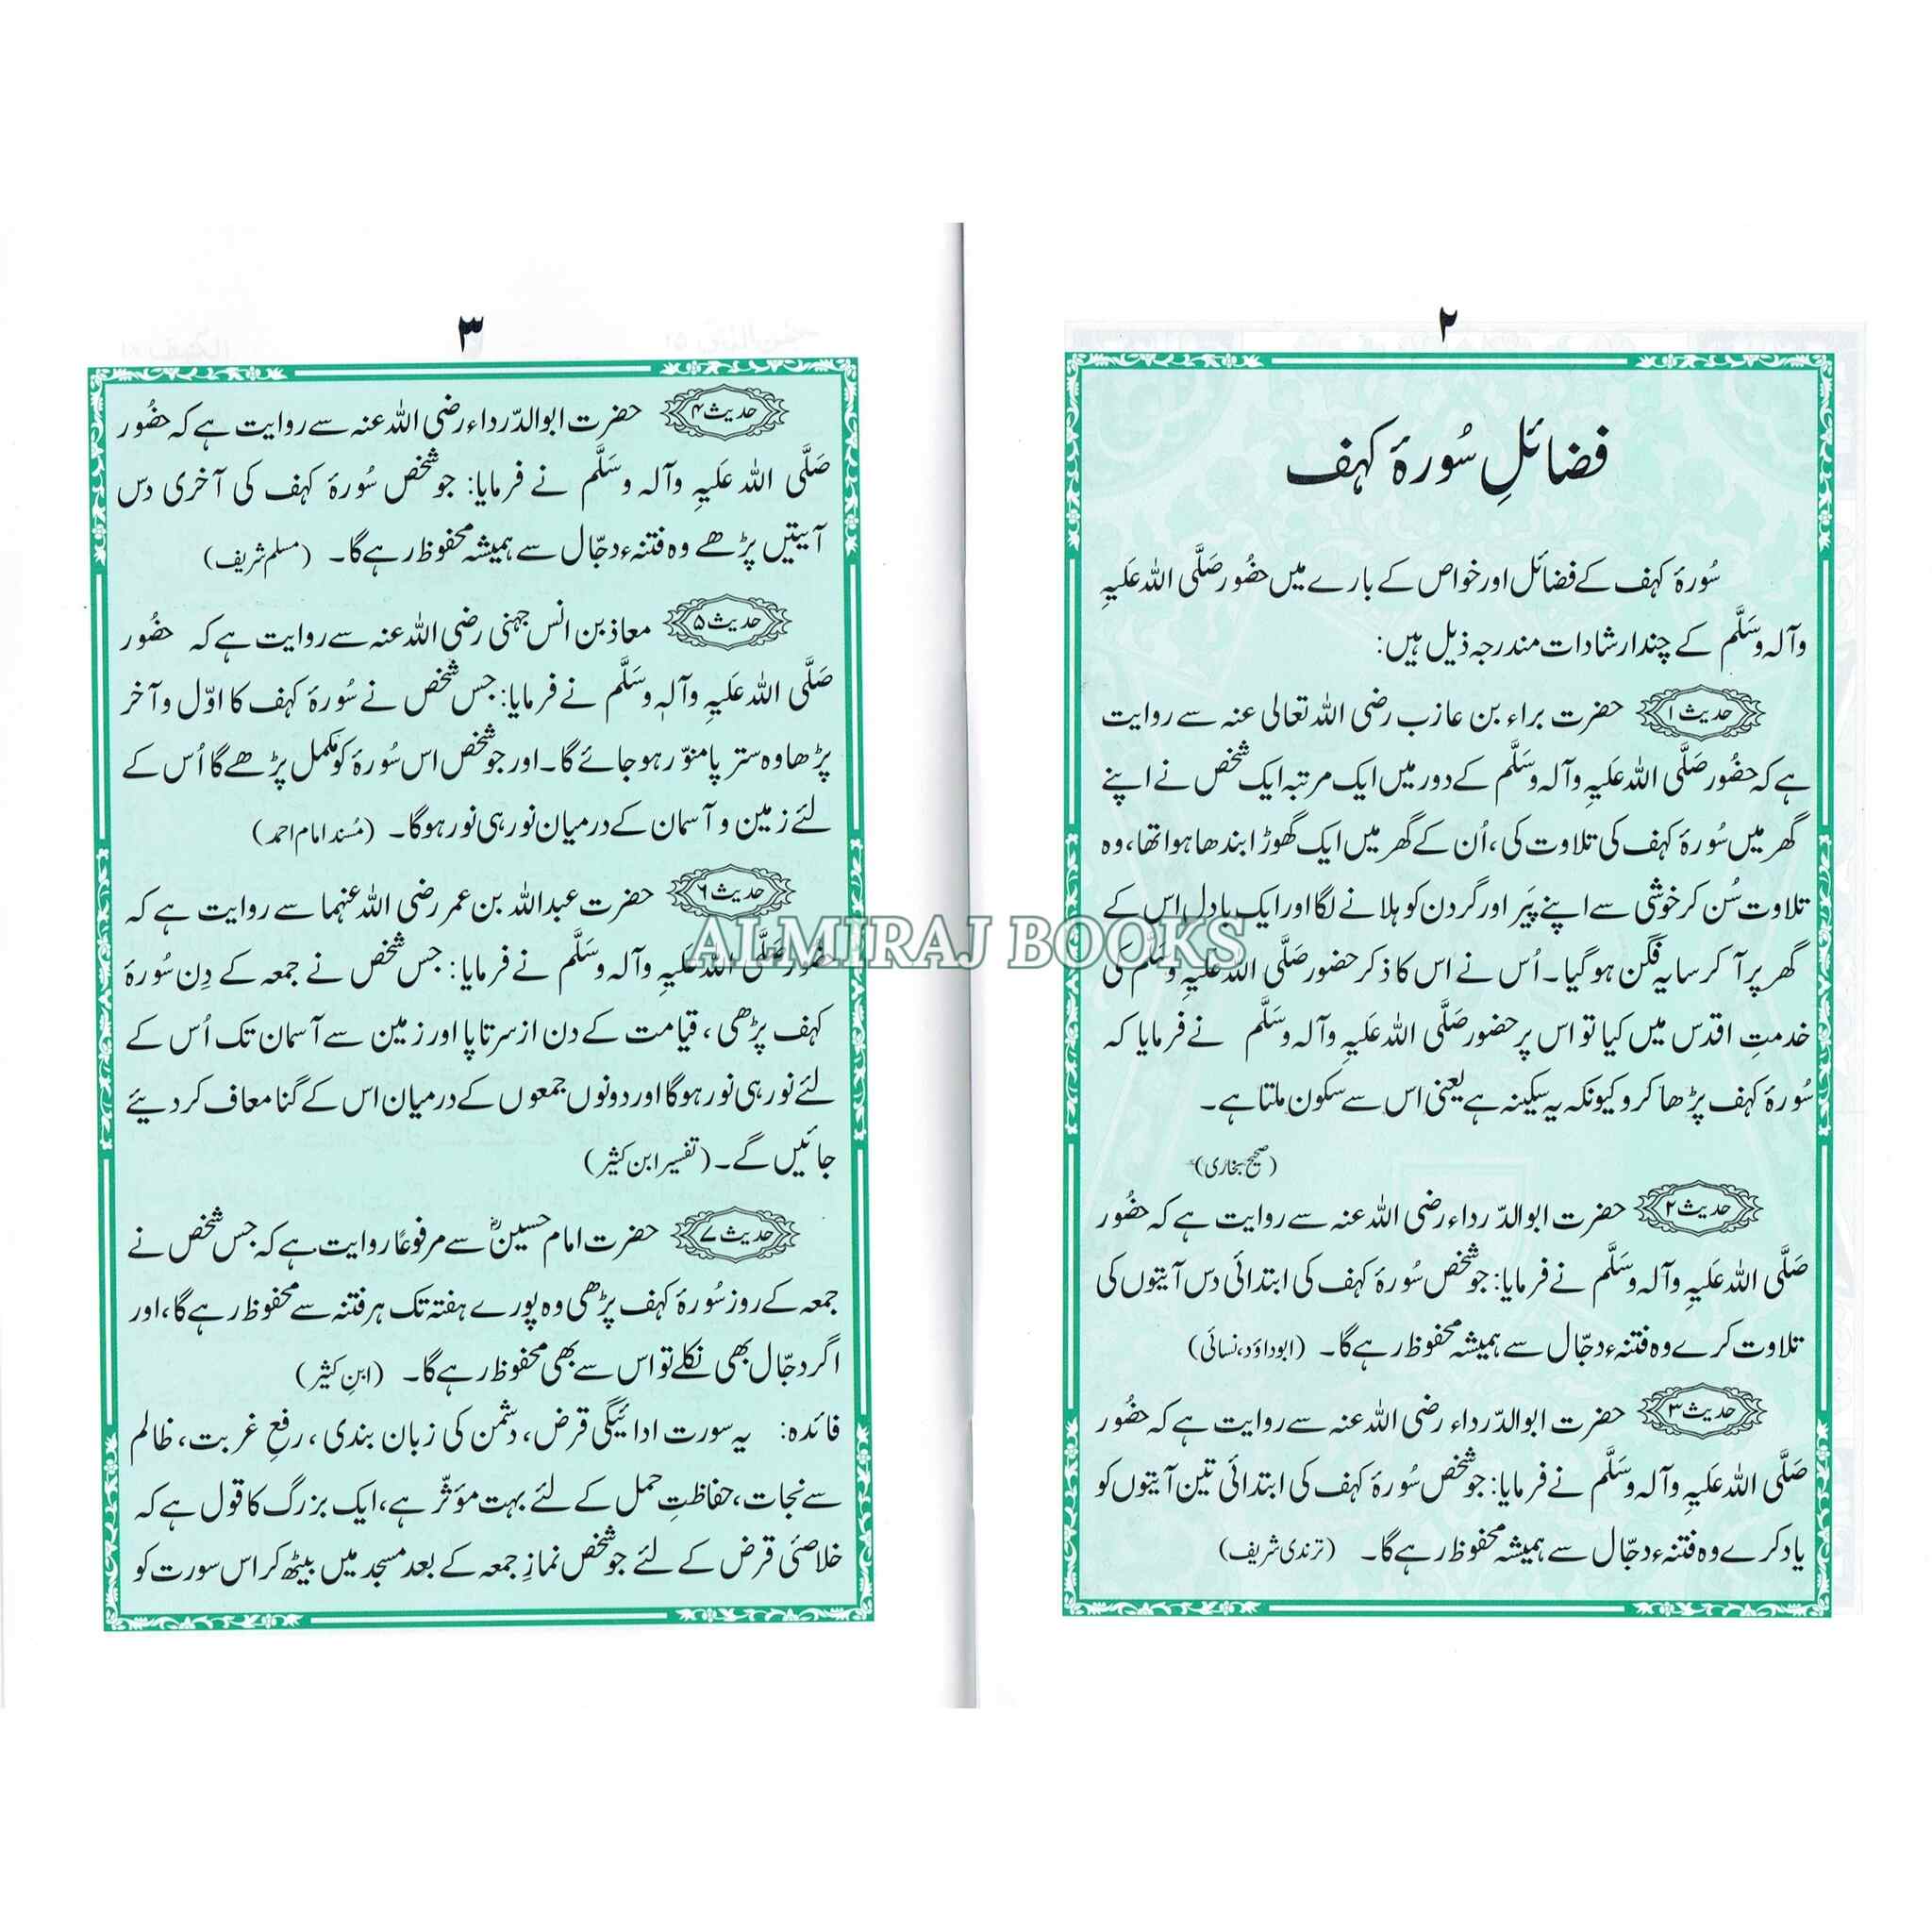 ۲
فضائلِ سُورۂ کہف
سُورۂ کہف کے فضائل اور خواص کے بارے میں حضُور صَلَّی اللہ عَلَیہِ
وآلہ وسَلَّم کے چند ارشادات مندرجہ ذیل ہیں:
حدیث ۱ حضرت براء بن عازب رضی اللہ تعالیٰ عنہ سے روایت
ہے کہ حضُور صَلَّی اللہ عَلَیہِ وآلہ وسَلَّم کے دور میں ایک مرتبہ ایک شخص نے اپنے
گھر میں سُورۂ کہف کی تلاوت کی، اُن کے گھر میں ایک گھوڑا بندھا ہوا تھا، وہ
تلاوت سُن کر خوشی سے اپنے پَیر اور گردن کو ہلانے لگا اور ایک بادل اس کے
گھر پر آ کر سایہ فگن ہو گیا۔ اُس نے اس کا ذکر حضور صَلَّی اللہ عَلَیہِ وسَلَّم کی
خدمتِ اقدس میں کیا تو اس پر حضور صَلَّی اللہ عَلَیہِ وآلہ وسَلَّم نے فرمایا کہ
سُورۂ کہف پڑھا کرو کیونکہ یہ سکینہ ہے یعنی اس سے سکون ملتا ہے۔
(صحیح بخاری)
حدیث ۲ حضرت ابوالدّرداء رضی اللہ عنہ سے روایت ہے کہ حضُور
صَلَّی اللہ عَلَیہِ وآلہ وسَلَّم نے فرمایا: جو شخص سُورۂ کہف کی ابتدائی دس آیتوں کی
تلاوت کرے وہ فتنہء دجّال سے ہمیشہ محفوظ رہے گا۔ (ابوداؤد، نسائی)
حدیث ۳ حضرت ابوالدّرداء رضی اللہ عنہ سے روایت ہے کہ حضُور
صَلَّی اللہ عَلَیہِ وآلہ وسَلَّم نے فرمایا: جو شخص سُورۂ کہف کی ابتدائی تین آیتوں کو
یاد کرے وہ فتنہء دجّال سے ہمیشہ محفوظ رہے گا۔ (ترندی شریف)
۳
حدیث ۴ حضرت ابوالدّرداء رضی اللہ عنہ سے روایت ہے کہ حضُور
صَلَّی اللہ عَلَیہِ وآلہ وسَلَّم نے فرمایا: جو شخص سُورۂ کہف کی آخری دس
آیتیں پڑھے وہ فتنہء دجّال سے ہمیشہ محفوظ رہے گا۔ (مسلم شریف)
حدیث ۵ معاذ بن انس جہنی رضی اللہ عنہ سے روایت ہے کہ حضُور
صَلَّی اللہ عَلَیہِ وآلہٖ وسَلَّم نے فرمایا: جس شخص نے سُورۂ کہف کا اوّل و آخر
پڑھا وہ ستر پا منوّر ہو جائے گا۔ اور جو شخص اس سُورۂ کو مکمل پڑھے گا اُس کے
لئے زمین و آسمان کے درمیان نور ہی نور ہوگا۔ (مُسند امام احمد)
حدیث ۶ حضرت عبداللہ بن عمر رضی اللہ عنہما سے روایت ہے کہ
حضُور صَلَّی اللہ عَلَیہِ وآلہ وسَلَّم نے فرمایا: جس شخص نے جمعہ کے دِن سُورۂ
کہف پڑھی، قیامت کے دن از سر تا پا اور زمین سے آسمان تک اُس کے
لئے نور ہی نور ہوگا اور دونوں جمعوں کے درمیان اس کے گنا معاف کر دیئے
جائیں گے۔ (تفسیر ابن کثیر)
حدیث ۷ حضرت امام حسینؓ سے مرفوعًا روایت ہے کہ جس شخص نے
جمعہ کے روز سُورۂ کہف پڑھی وہ پورے ہفتہ تک ہر فتنہ سے محفوظ رہے گا، اور
اگر دجّال بھی نکلے تو اس سے بھی محفوظ رہے گا۔ (ابنِ کثیر)
فائدہ: یہ سورت ادائیگی قرض، دشمن کی زبان بندی، رفعِ غربت، ظالم
سے نجات، حفاظتِ حمل کے لئے بہت مؤثّر ہے، ایک بزرگ کا قول ہے کہ
خلاصئی قرض کے لئے جو شخص نمازِ جمعہ کے بعد مسجد میں بیٹھ کر اس سورت کو
ALMIRAJ BOOKS